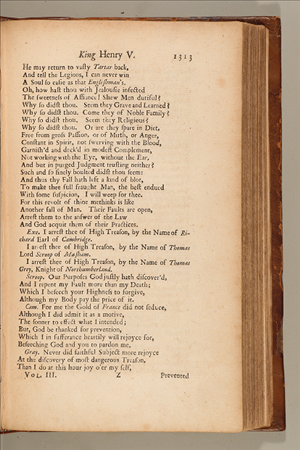 King Henry V. 1313
He may return to vasty Tartar back,
And tell the Legions, I can never win
A Soul so easie as that Englishman's.
Oh, how hast thou with Jealousie infected
The sweetness of Affiance! Shew Men dutiful?
Why so didst thou. Seem they Grave and Learned?
Why so didst thou. Come they of Noble Family?
Why so didst thou. Seem they Religious?
Why so didst thou. Or are they spare in Diet,
Free from gross Passion, or of Mirth, or Anger,
Constant in Spirit, not swerving with the Blood,
Garnish'd and deck'd in modest Complement,
Not working with the Eye, without the Ear,
And but in purged Judgment trusting neither?
Such and so finely boulted didst thou seem:
And thus thy Fall hath left a kind of blot,
To make thee full fraught Man, the best endued
With some suspicion, I will weep for thee.
For this revolt of thine methinks is like
Another fall of Man. Their Faults are open,
Arrest them to the answer of the Law
And God acquit them of their Practices.
Exe. I arrest thee of High Treason, by the Name of Ri-
chard Earl of Cambridge.
I arrest thee of High Treason, by the Name of Thomas
Lord Scroop of Masham.
I arrest thee of High Treason, by the Name of Thomas
Grey, Knight of Northumberland.
Scroop. Our Purposes God justly hath discover'd,
And I repent my Fault more than my Death;
Which I beseech your Highness to forgive,
Although my Body pay the price of it.
Cam. For me the Gold of France did not seduce,
Although I did admit it as a motive,
The sooner to effect what I intended;
But, God be thanked for prevention,
Which I in sufferance heartily will rejoyce for,
Beseeching God and you to pardon me.
Gray. Never did faithful Subject more rejoyce
At the discovery of most dangerous Treason,
Than I do at this hour joy o'er my self,
VOL. III. Z Prevented